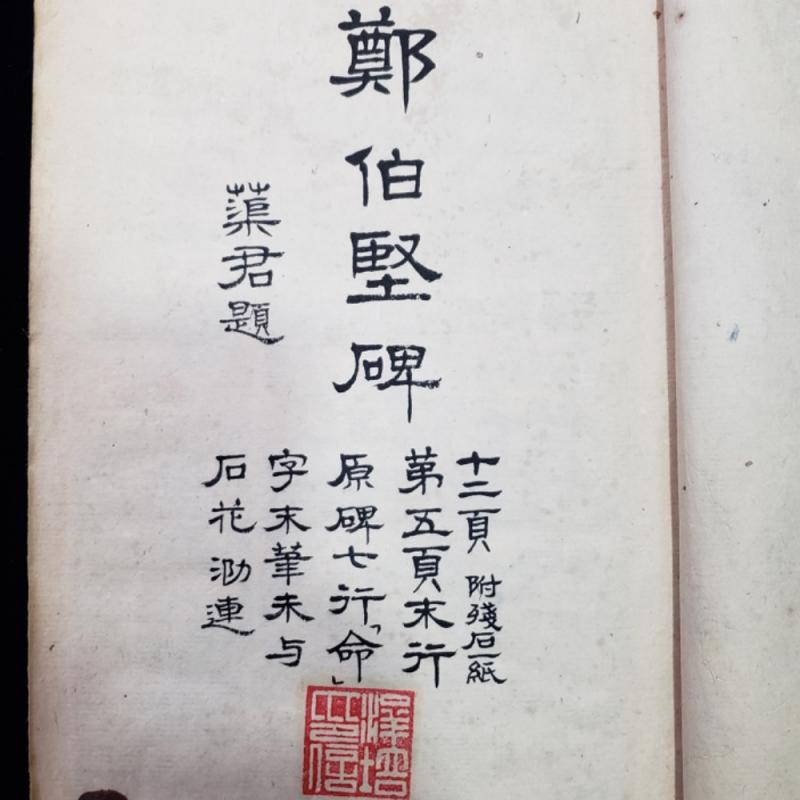 鄭伯堅碑
蕖君題
十二頁 附殘石一紙
第五頁末行
原碑七行「命」
字末筆未与
石花泐連